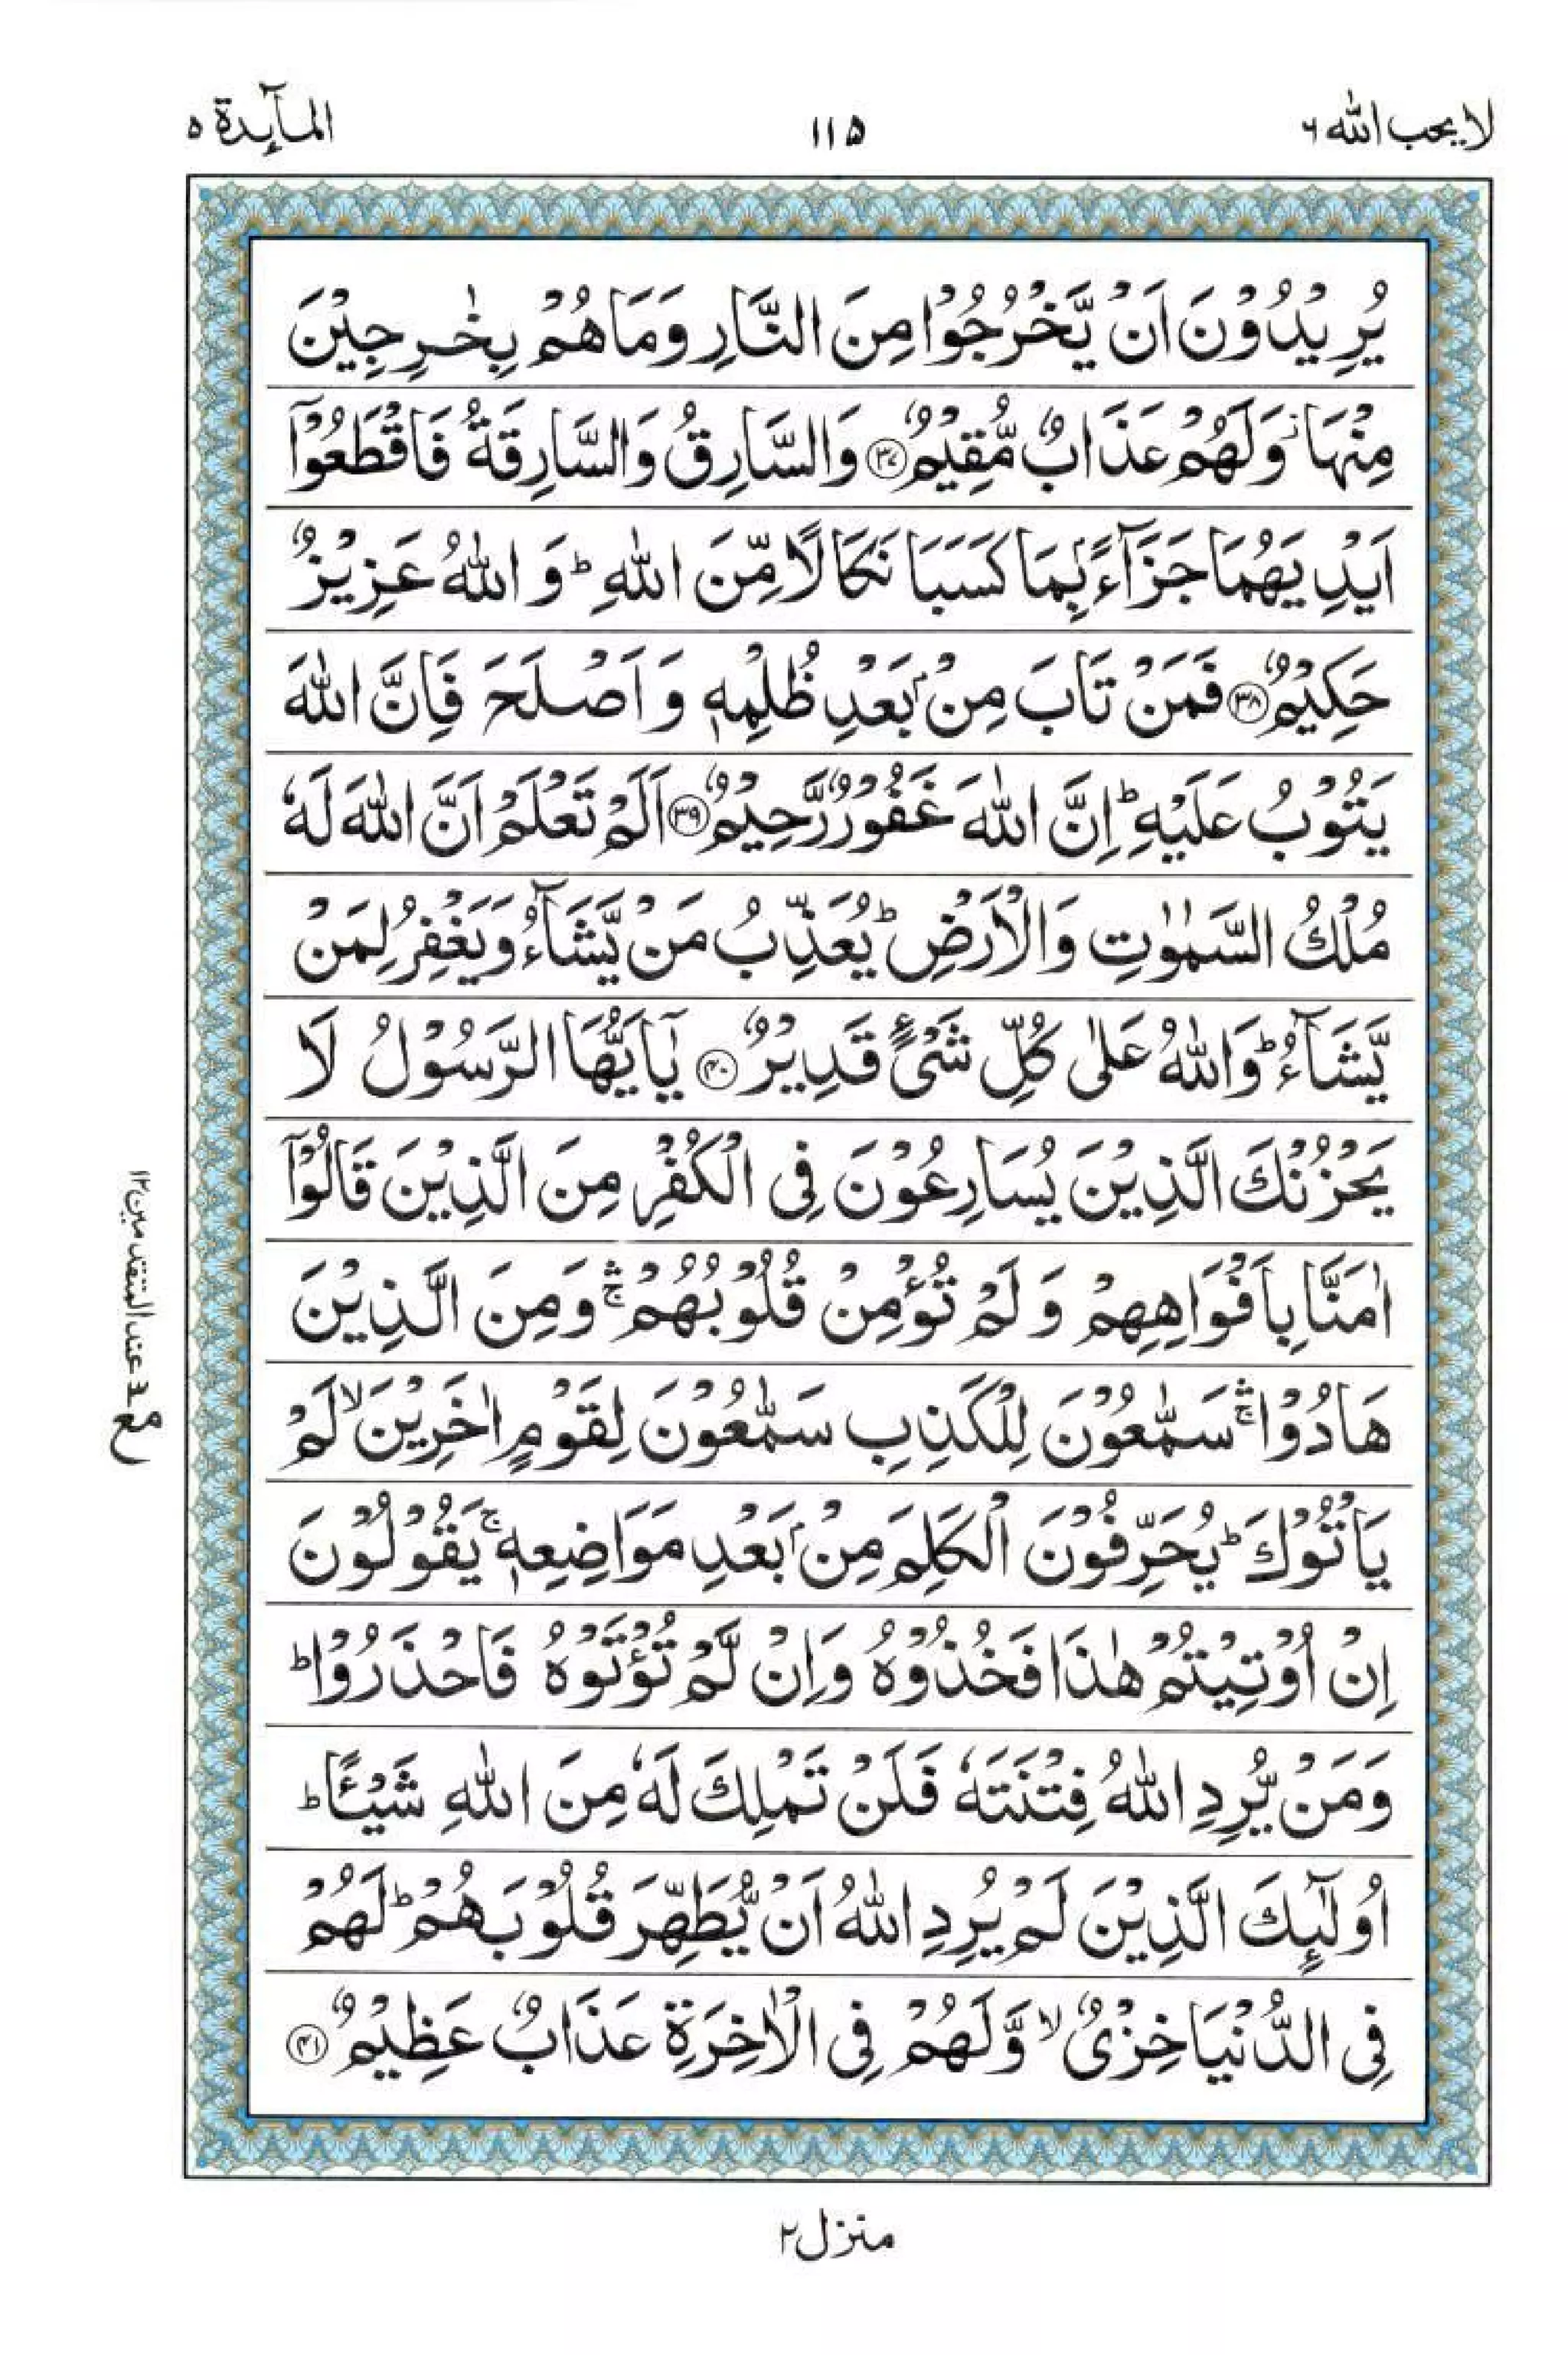 لا يحب الله ٦
١١٥
المآىِٕدة ٥
يُرِيْدُوْنَ اَنْ يَّخْرُجُوْا مِنَ النَّارِ وَمَا هُمْ بِخٰرِجِيْنَ
مِنْهَا ۫ وَلَهُمْ عَذَابٌ مُّقِيْمٌ ﴿٣٧﴾ وَالسَّارِقُ وَالسَّارِقَةُ فَاقْطَعُوْۤا
اَيْدِيَهُمَا جَزَآءًۢ بِمَا كَسَبَا نَكَالًا مِّنَ اللّٰهِ ؕ وَ اللّٰهُ عَزِيْزٌ
حَكِيْمٌ ﴿٣٨﴾ فَمَنْ تَابَ مِنْۢ بَعْدِ ظُلْمِهٖ وَ اَصْلَحَ فَاِنَّ اللّٰهَ
يَتُوْبُ عَلَيْهِ ؕ اِنَّ اللّٰهَ غَفُوْرٌ رَّحِيْمٌ ﴿٣٩﴾ اَلَمْ تَعْلَمْ اَنَّ اللّٰهَ لَهٗ
مُلْكُ السَّمٰوٰتِ وَالْاَرْضِ ؕ يُعَذِّبُ مَنْ يَّشَآءُ وَيَغْفِرُ لِمَنْ
يَّشَآءُ ؕ وَاللّٰهُ عَلٰى كُلِّ شَيْءٍ قَدِيْرٌ ﴿٤٠﴾ يٰۤاَيُّهَا الرَّسُوْلُ لَا
يَحْزُنْكَ الَّذِيْنَ يُسَارِعُوْنَ فِى الْكُفْرِ مِنَ الَّذِيْنَ قَالُوْۤا
اٰمَنَّا بِاَفْوَاهِهِمْ وَ لَمْ تُؤْمِنْ قُلُوْبُهُمْ ۛۚ وَمِنَ الَّذِيْنَ
هَادُوْا ۛۚ سَمّٰعُوْنَ لِلْكَذِبِ سَمّٰعُوْنَ لِقَوْمٍ اٰخَرِيْنَ ۙ لَمْ
يَاْتُوْكَ ؕ يُحَرِّفُوْنَ الْكَلِمَ مِنْۢ بَعْدِ مَوَاضِعِهٖ ۚ يَقُوْلُوْنَ
اِنْ اُوْتِيْتُمْ هٰذَا فَخُذُوْهُ وَاِنْ لَّمْ تُؤْتَوْهُ فَاحْذَرُوْا ؕ
وَمَنْ يُّرِدِ اللّٰهُ فِتْنَتَهٗ فَلَنْ تَمْلِكَ لَهٗ مِنَ اللّٰهِ شَيْـًٔا ؕ
اُولٰٓىِٕكَ الَّذِيْنَ لَمْ يُرِدِ اللّٰهُ اَنْ يُّطَهِّرَ قُلُوْبَهُمْ ؕ لَهُمْ
فِى الدُّنْيَا خِزْىٌ ۙ وَّلَهُمْ فِى الْاٰخِرَةِ عَذَابٌ عَظِيْمٌ ﴿٤١﴾
عند المتقدمين ١٢
منزل ٢